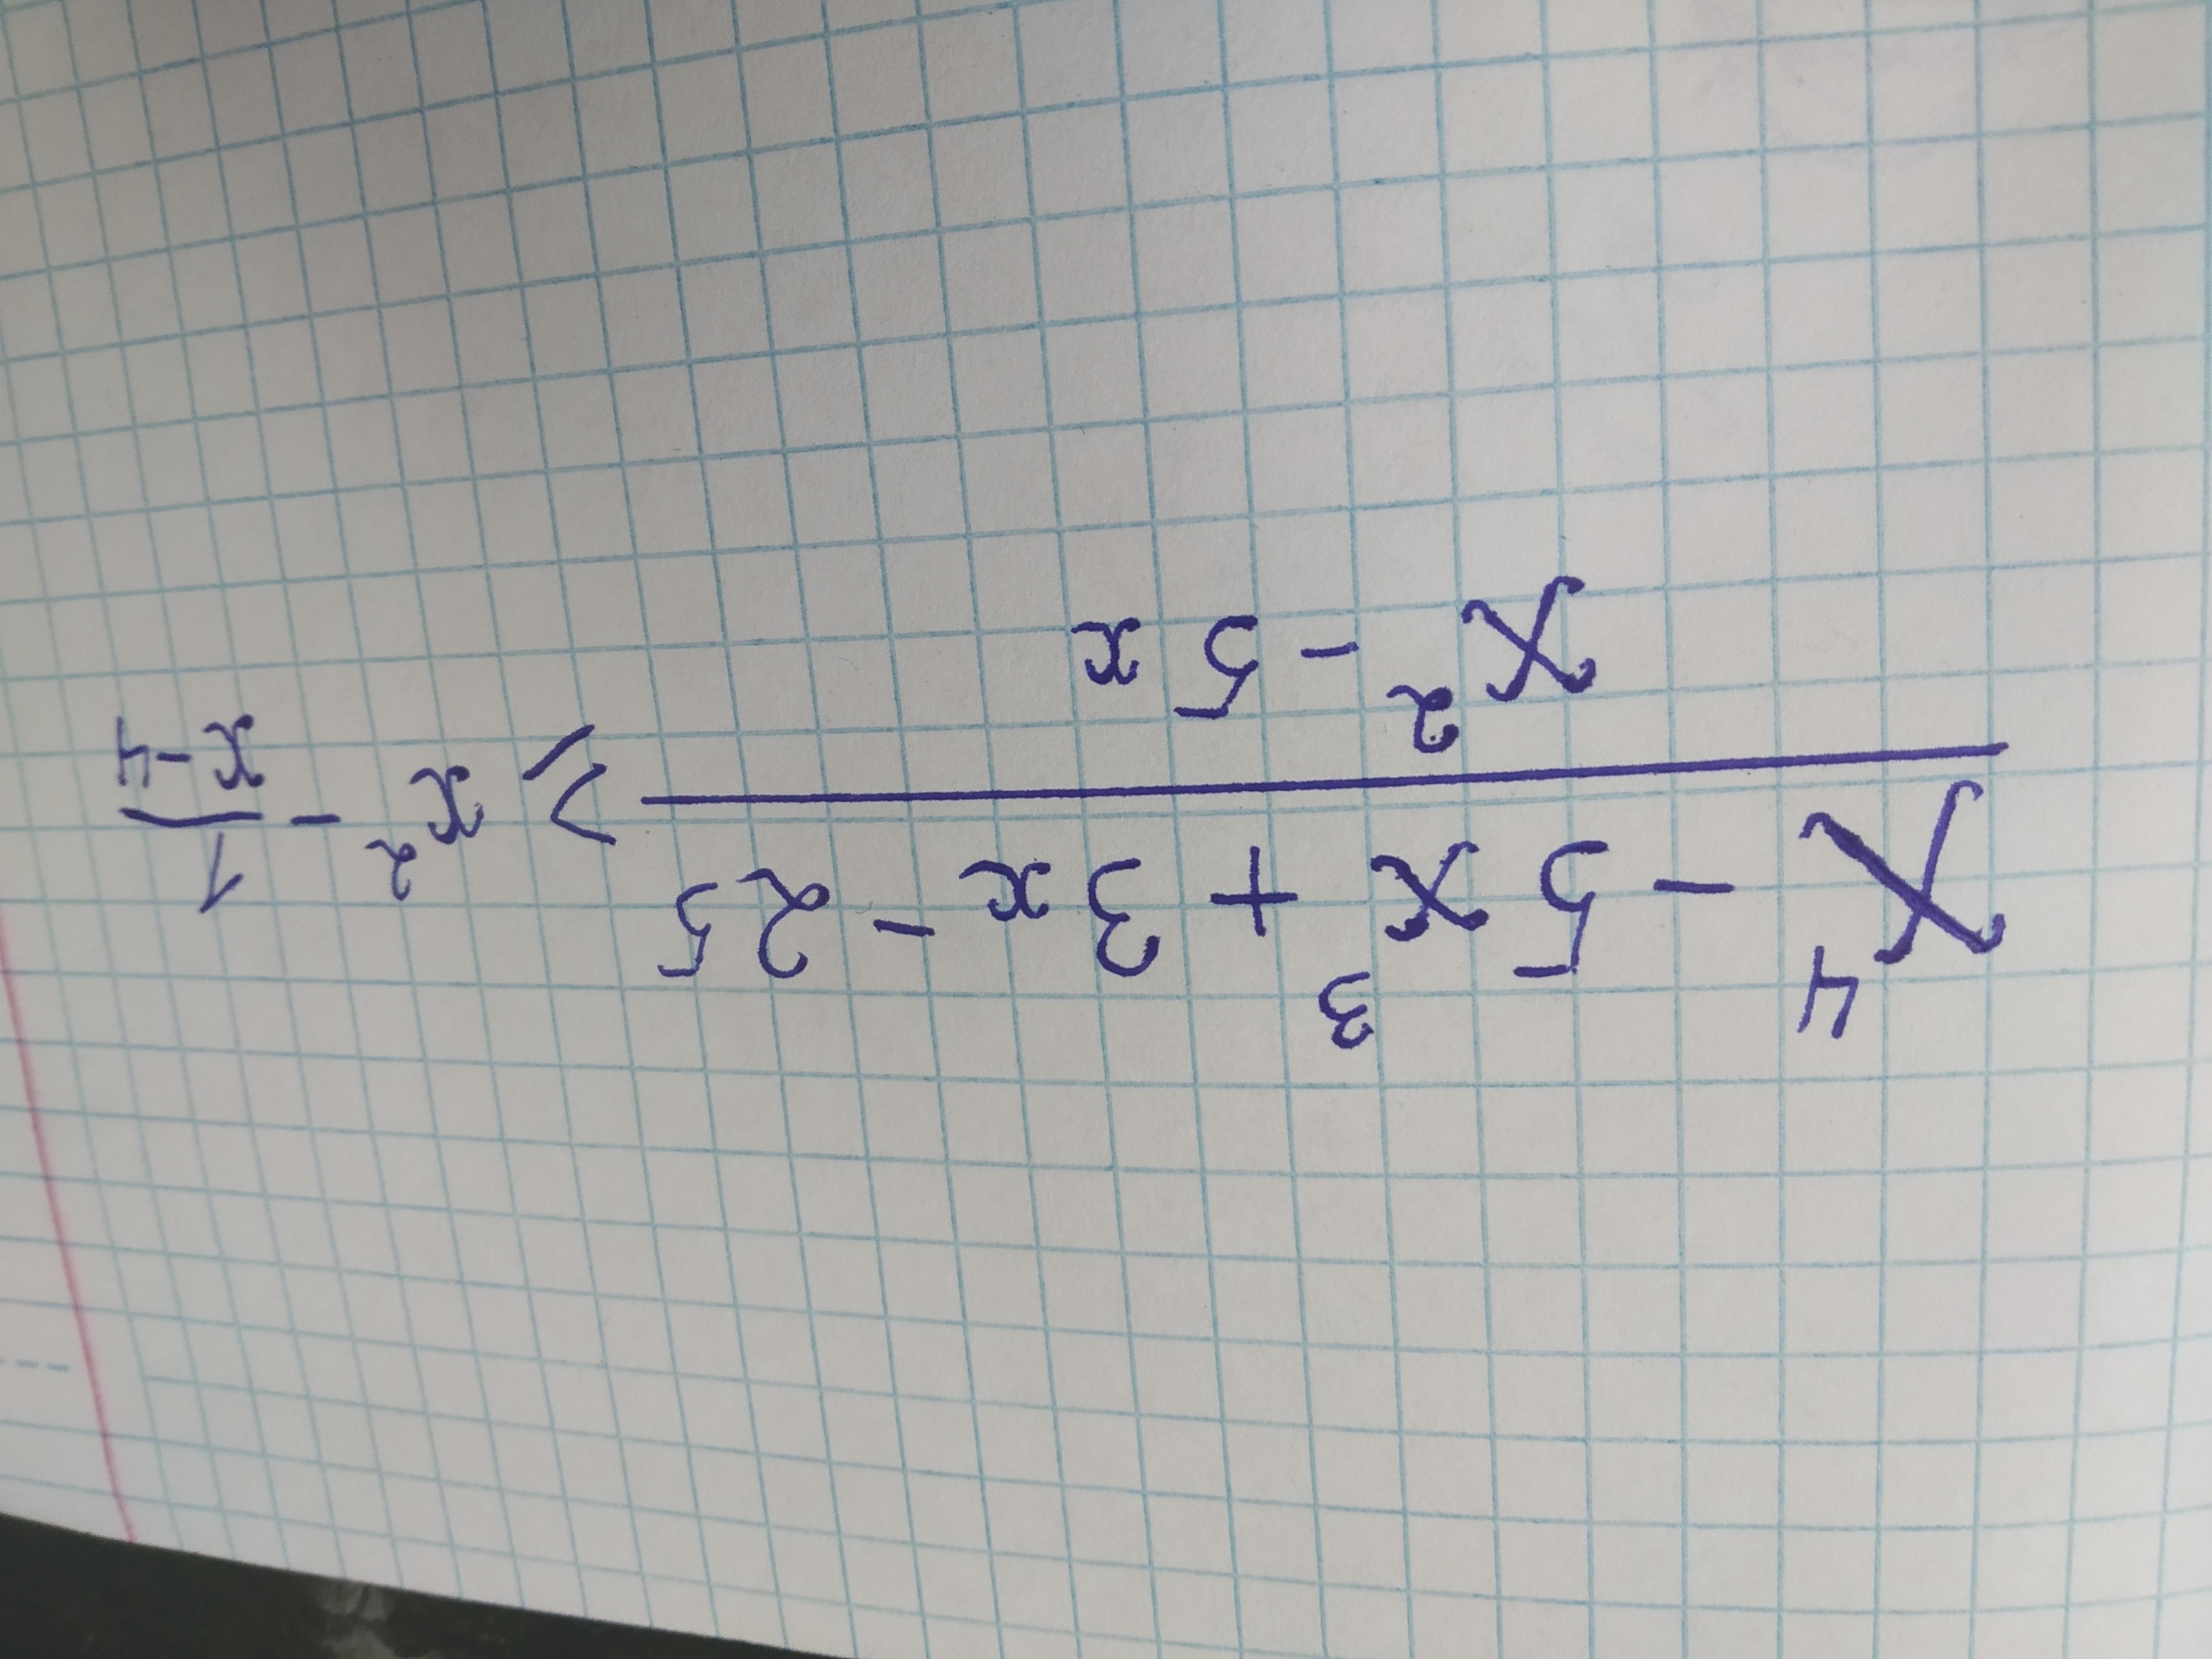 x⁴ - 5x³ + 3x - 25
x² - 5x
⩾ x² - 1/(x-4)